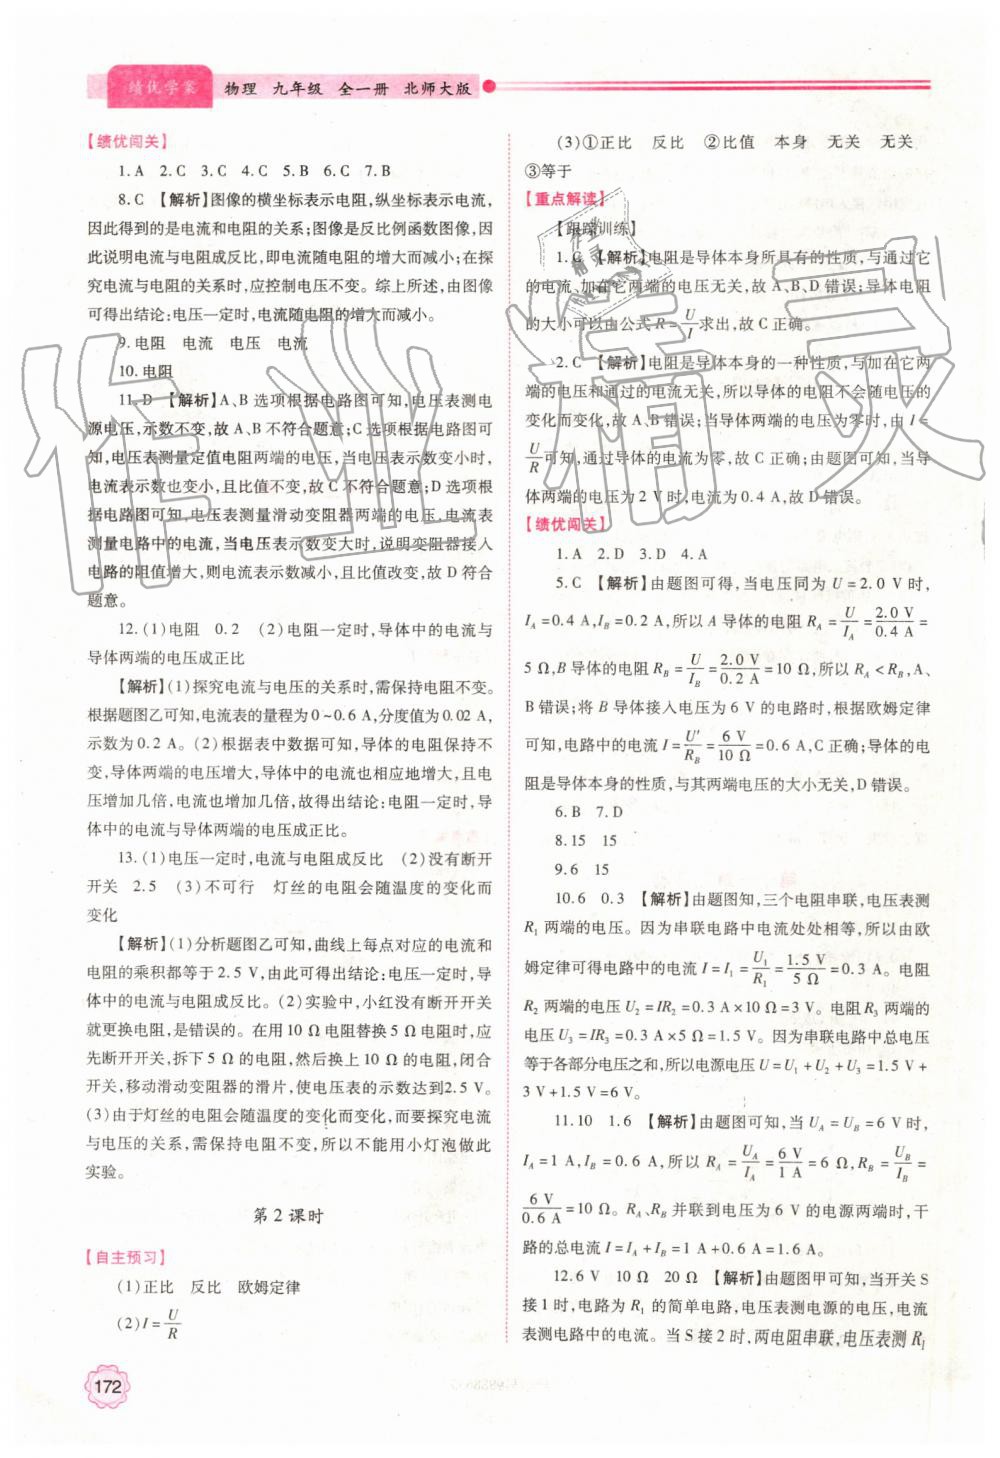 绩优学案 物理 九年级 全一册 北师大版
【绩优闯关】
1. A 2. C 3. C 4. C 5. B 6. C 7. B
8. C 【解析】图像的横坐标表示电阻,纵坐标表示电流,
因此得到的是电流和电阻的关系;图像是反比例函数图像,因
此说明电流与电阻成反比,即电流随电阻的增大而减小;在探
究电流与电阻的关系时,应控制电压不变。综上所述,由图像
可得出结论:电压一定时,电流随电阻的增大而减小。
9. 电阻 电流 电压 电流
10. 电阻
11. D 【解析】A、B 选项根据电路图可知,电压表测电
源电压,示数不变,故 A、B 不符合题意;C 选项根据电路图可
知,电压表测量定值电阻两端的电压,当电压表示数变小时,
电流表示数也变小,且比值不变,故 C 不符合题意;D 选项根
据电路图可知,电压表测量滑动变阻器两端的电压,电流表
测量电路中的电流,当电压表示数变大时,说明变阻器接入
电路的阻值增大,则电流表示数减小,且比值改变,故 D 符合
题意。
12. (1)电阻 0.2 (2)电阻一定时,导体中的电流与
导体两端的电压成正比
【解析】(1)探究电流与电压的关系时,需保持电阻不变。
根据题图乙可知,电流表的量程为 0~0.6 A,分度值为 0.02 A,
示数为 0.2 A。(2)根据表中数据可知,导体的电阻保持不
变,导体两端的电压增大,导体中的电流也相应地增大,且电
压增加几倍,电流也增加几倍,故得出结论:电阻一定时,导
体中的电流与导体两端的电压成正比。
13. (1)电压一定时,电流与电阻成反比 (2)没有断开
开关 2.5 (3)不可行 灯丝的电阻会随温度的变化而
变化
【解析】(1)分析题图乙可知,曲线上每点对应的电流和
电阻的乘积都等于 2.5 V,由此可得出结论:电压一定时,电
流与电阻成反比。(2)实验中,小红没有断开开关
就更换电阻,是错误的。在用 10 Ω 电阻替换 5 Ω 电阻时,应
先断开开关,拆下 5 Ω 的电阻,然后换上 10 Ω 的电阻,闭合
开关,移动滑动变阻器的滑片,使电压表的示数达到2.5 V。
(3)由于灯丝的电阻会随温度的变化而变化,而要探究电流
与电压的关系,需保持电阻不变,所以不能用小灯泡做此
实验。
第 2 课时
【自主预习】
(1)正比 反比 欧姆定律
(2)I=U/R
172
(3)①正比 反比 ②比值 本身 无关 无关
③等于
【重点解读】
【跟踪训练】
1. C 【解析】电阻是导体本身所具有的性质,与通过它
的电流、加在它两端的电压无关,故 A、B、D 错误;导体电阻
的大小可以由公式 R=U/I求出,故 C 正确。
2. C 【解析】电阻是导体本身的一种性质,与加在它两
端的电压和通过的电流无关,所以导体的电阻不会随电压的
变化而变化,故 A、B 错误;当导体两端的电压为零时,由 I=
U/R可知,通过导体的电流为零,故 C 正确;由题图可知,当导
体两端的电压为 2 V 时,电流为 0.4 A,故 D 错误。
【绩优闯关】
1. A 2. D 3. D 4. A
5. C 【解析】由题图可得,当电压同为 U=2.0 V 时,
I_A=0.4 A,I_B=0.2 A,所以 A 导体的电阻 R_A=U/I_A=2.0 V/0.4 A=
5 Ω,B 导体的电阻 R_B=U/I_B=2.0 V/0.2 A=10 Ω,所以 R_A<R_B,A、
B 错误;将 B 导体接入电压为 6 V 的电路时,根据欧姆定律
可知,电路中的电流 I=U′/R_B=6 V/10 Ω=0.6 A,C 正确;导体的电
阻是导体本身的性质,与其两端电压的大小无关,D 错误。
6. B 7. D
8. 15 15
9. 6 15
10. 6 0.3 【解析】由题图知,三个电阻串联,电压表测
R₁ 两端的电压。因为串联电路中电流处处相等,所以由欧
姆定律可得电路中的电流 I=I₁=U₁/R₁=1.5 V/5 Ω=0.3 A。电阻
R₂ 两端的电压 U₂=IR₂=0.3 A×10 Ω=3 V。电阻R₃ 两端的
电压 U₃=IR₃=0.3 A×5 Ω=1.5 V。因为串联电路中总电压
等于各部分电压之和,所以电源电压 U=U₁+U₂+U₃=1.5 V+
3 V+1.5 V=6 V。
11. 10 1.6 【解析】由题图可知,当 U_A=U_B=6 V时,
I_A=1 A,I_B=0.6 A,所以 R_A=U_A/I_A=6 V/1 A=6 Ω,R_B=U_B/I_B=
6 V/0.6 A=10 Ω。R_A、R_B 并联到电压为 6 V 的电源两端时,干
路的总电流 I=I_A+I_B=1 A+0.6 A=1.6 A。
12. 6 V 10 Ω 20 Ω 【解析】由题图甲可知,当开关 S
接 1 时,电路为 R₁ 的简单电路,电压表测电源的电压,电流
表测电路中的电流。当 S 接 2 时,两电阻串联,电压表测 R₁
作业精灵